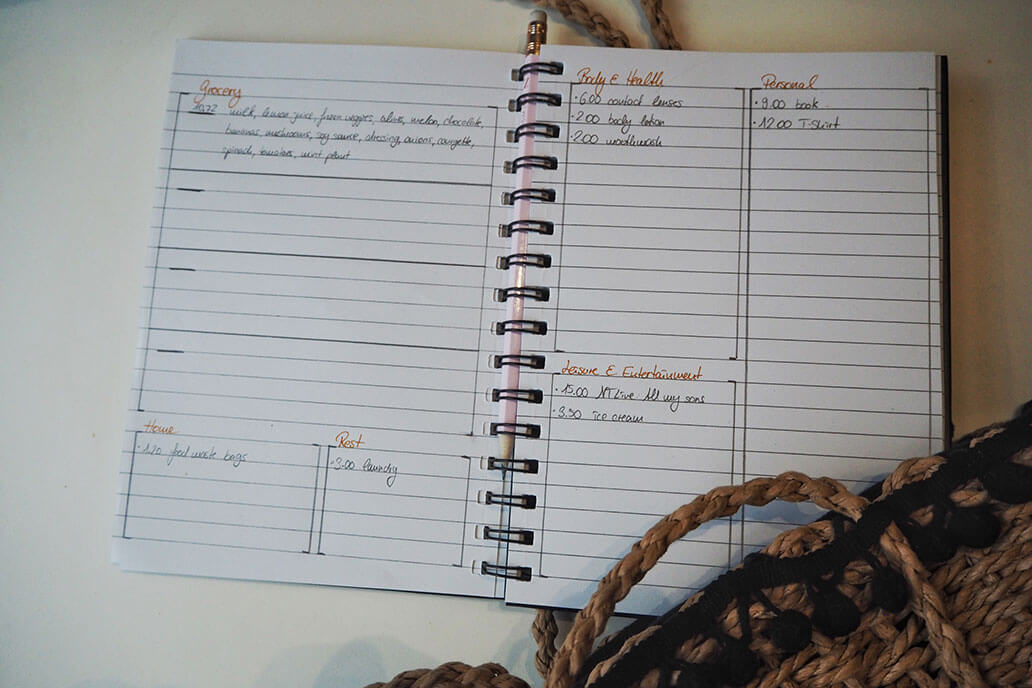 Grocery
milk, lemon juice, frozen veggies, olives, melon, chocolate,
bananas, mushrooms, soy sauce, dressing, onions, courgette,
spinach, tomatoes, mint plant
Home
· 1.20 food waste bags
Rest
· 3.00 laundry
Body & Health
· 6.00 contact lenses
· 2.00 body lotion
· 2.00 mouthwash
Personal
· 9.00 book
· 12.00 T-shirt
Leisure & Entertainment
· 15.00 NT Live All my sons
· 3.50 ice cream